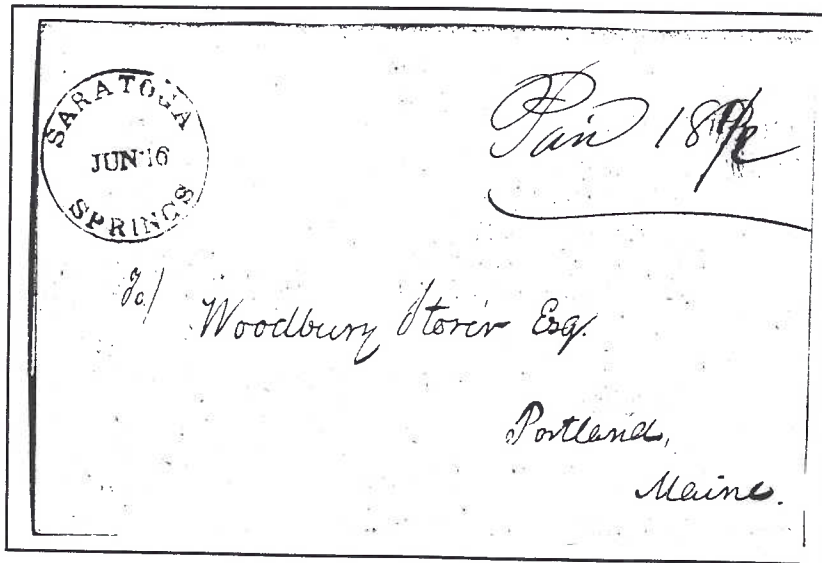 SARATOGA
JUN 16
SPRINGS
Paid 18
To/
Woodbury Storer Esq.
Portland,
Maine.